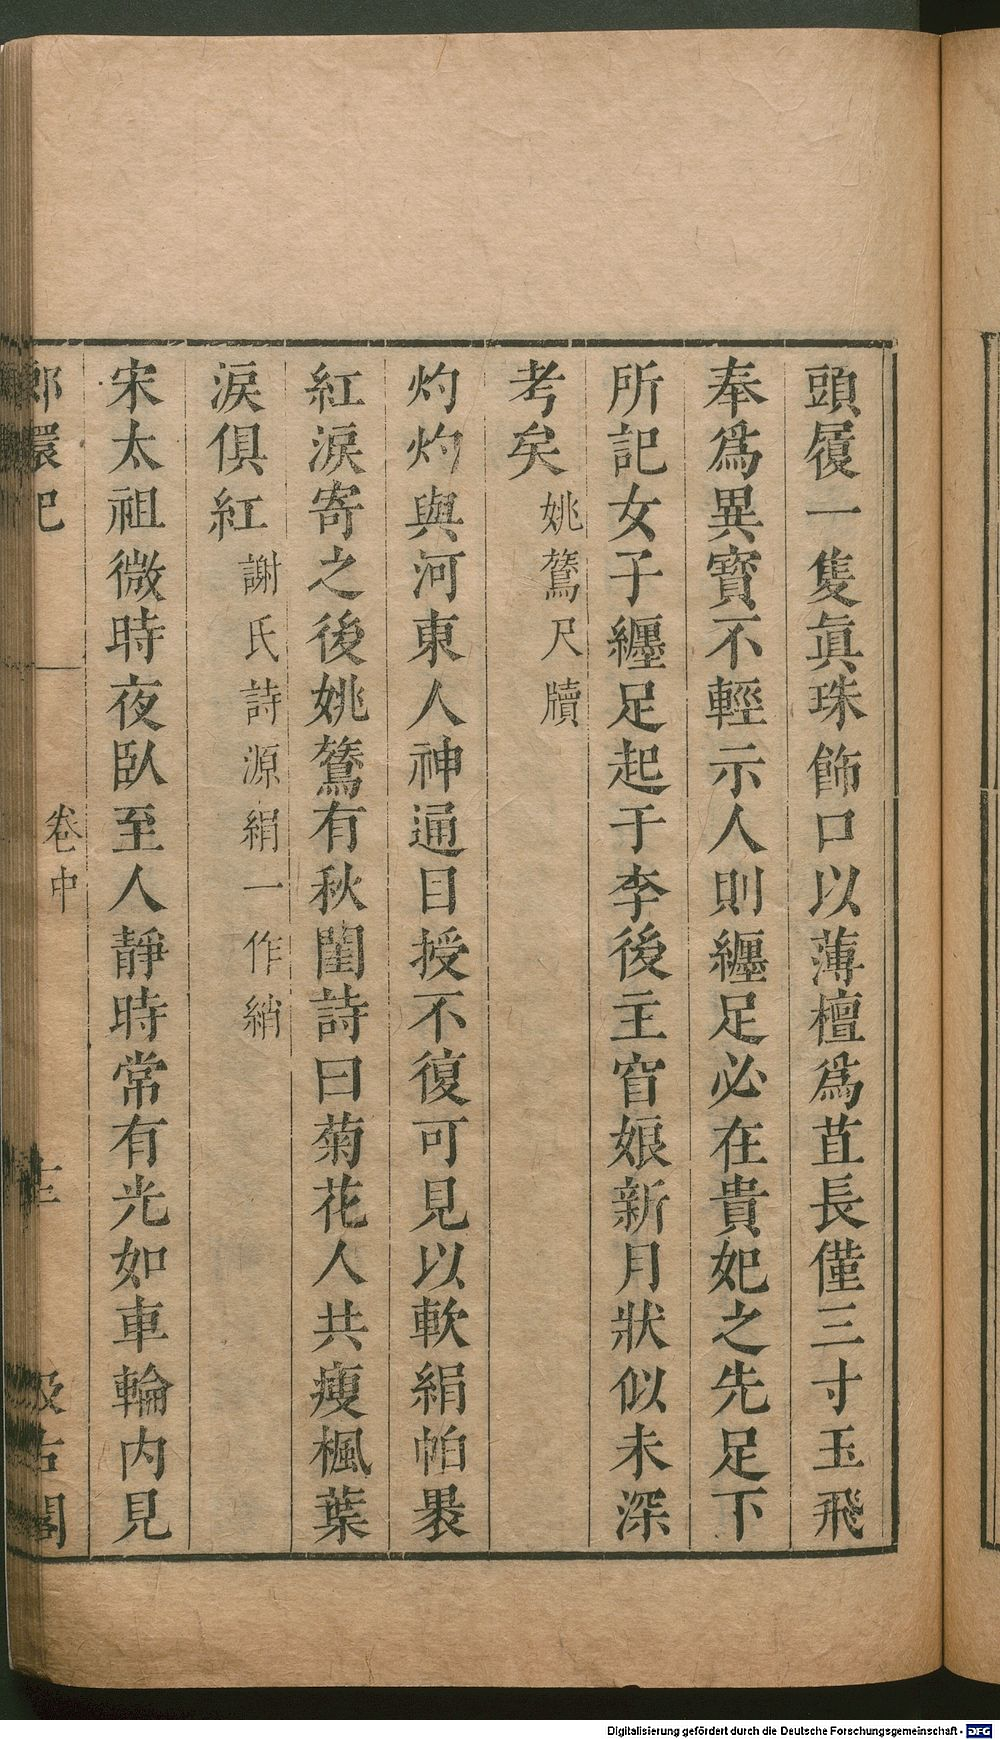 頭履一隻眞珠飾口以薄檀爲苴長僅三寸玉飛
奉爲異寳不輕示人則纏足必在貴妃之先足下
所記女子纏足起于李後主窅娘新月狀似未深
考矣姚鶖尺牘
灼灼與河東人神通目授不復可見以軟絹帕裹
紅淚寄之後姚鶖有秋閨詩曰菊花人共瘦楓葉
淚俱紅謝氏詩源絹一作綃
宋太祖微時夜臥至人靜時常有光如車輪內見
卷中
汲古閣
Digitalisierung gefördert durch die Deutsche Forschungsgemeinschaft - DFG